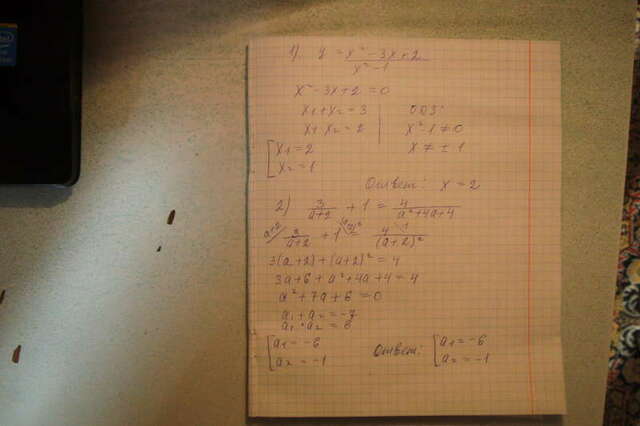 intel
1). y = (x² - 3x + 2)/(x² - 1)
x² - 3x + 2 = 0
x1 + x2 = 3 ОДЗ:
x1 x2 = 2 x² - 1 ≠ 0
[x1 = 2 x ≠ ± 1
x2 = 1
Ответ: x = 2
2) 3/(a+2) + 1 = 4/(a²+4a+4)
a+2/ 3/(a+2) + 1 (a+2)² = 4 \1/(a+2)²
3(a+2) + (a+2)² = 4
3a + 6 + a² + 4a + 4 = 4
a² + 7a + 6 = 0
a1 + a2 = -7
a1 · a2 = 6
[a1 = -6 Ответ: [a1 = -6
a2 = -1 a2 = -1